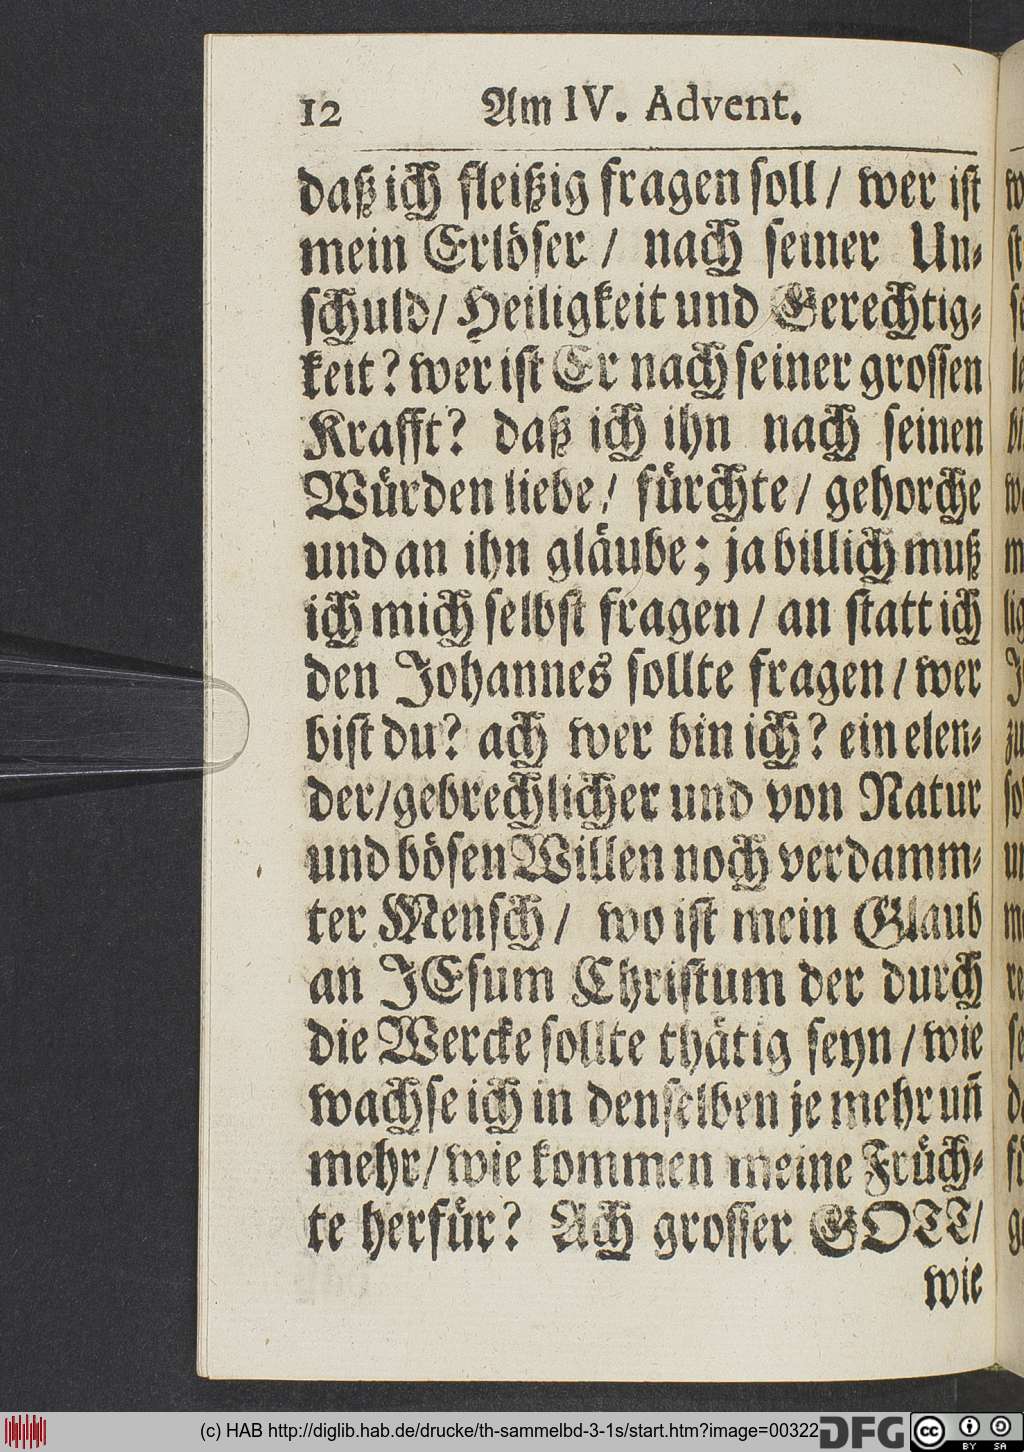 12 Am IV. Advent.
daß ich fleißig fragen soll / wer ist
mein Erlöser / nach seiner Un⸗
schuld / Heiligkeit und Gerechtig⸗
keit? wer ist Er nach seiner grossen
Krafft? daß ich ihn nach seinen
Würden liebe / fürchte / gehorche
und an ihn gläube; ja billich muß
ich mich selbst fragen / an statt ich
den Johannes sollte fragen / wer
bist du? ach wer bin ich? ein elen⸗
der / gebrechlicher und von Natur
und bösen Willen noch verdamm⸗
ter Mensch / wo ist mein Glaub
an JEsum Christum der durch
die Wercke sollte thätig seyn / wie
wachse ich in denselben je mehr uñ
mehr / wie kommen meine Früch⸗
te herfür? Ach grosser GOTT /
wie
(c) HAB http://diglib.hab.de/drucke/th-sammelbd-3-1s/start.htm?image=00322
DFG
cc BY SA